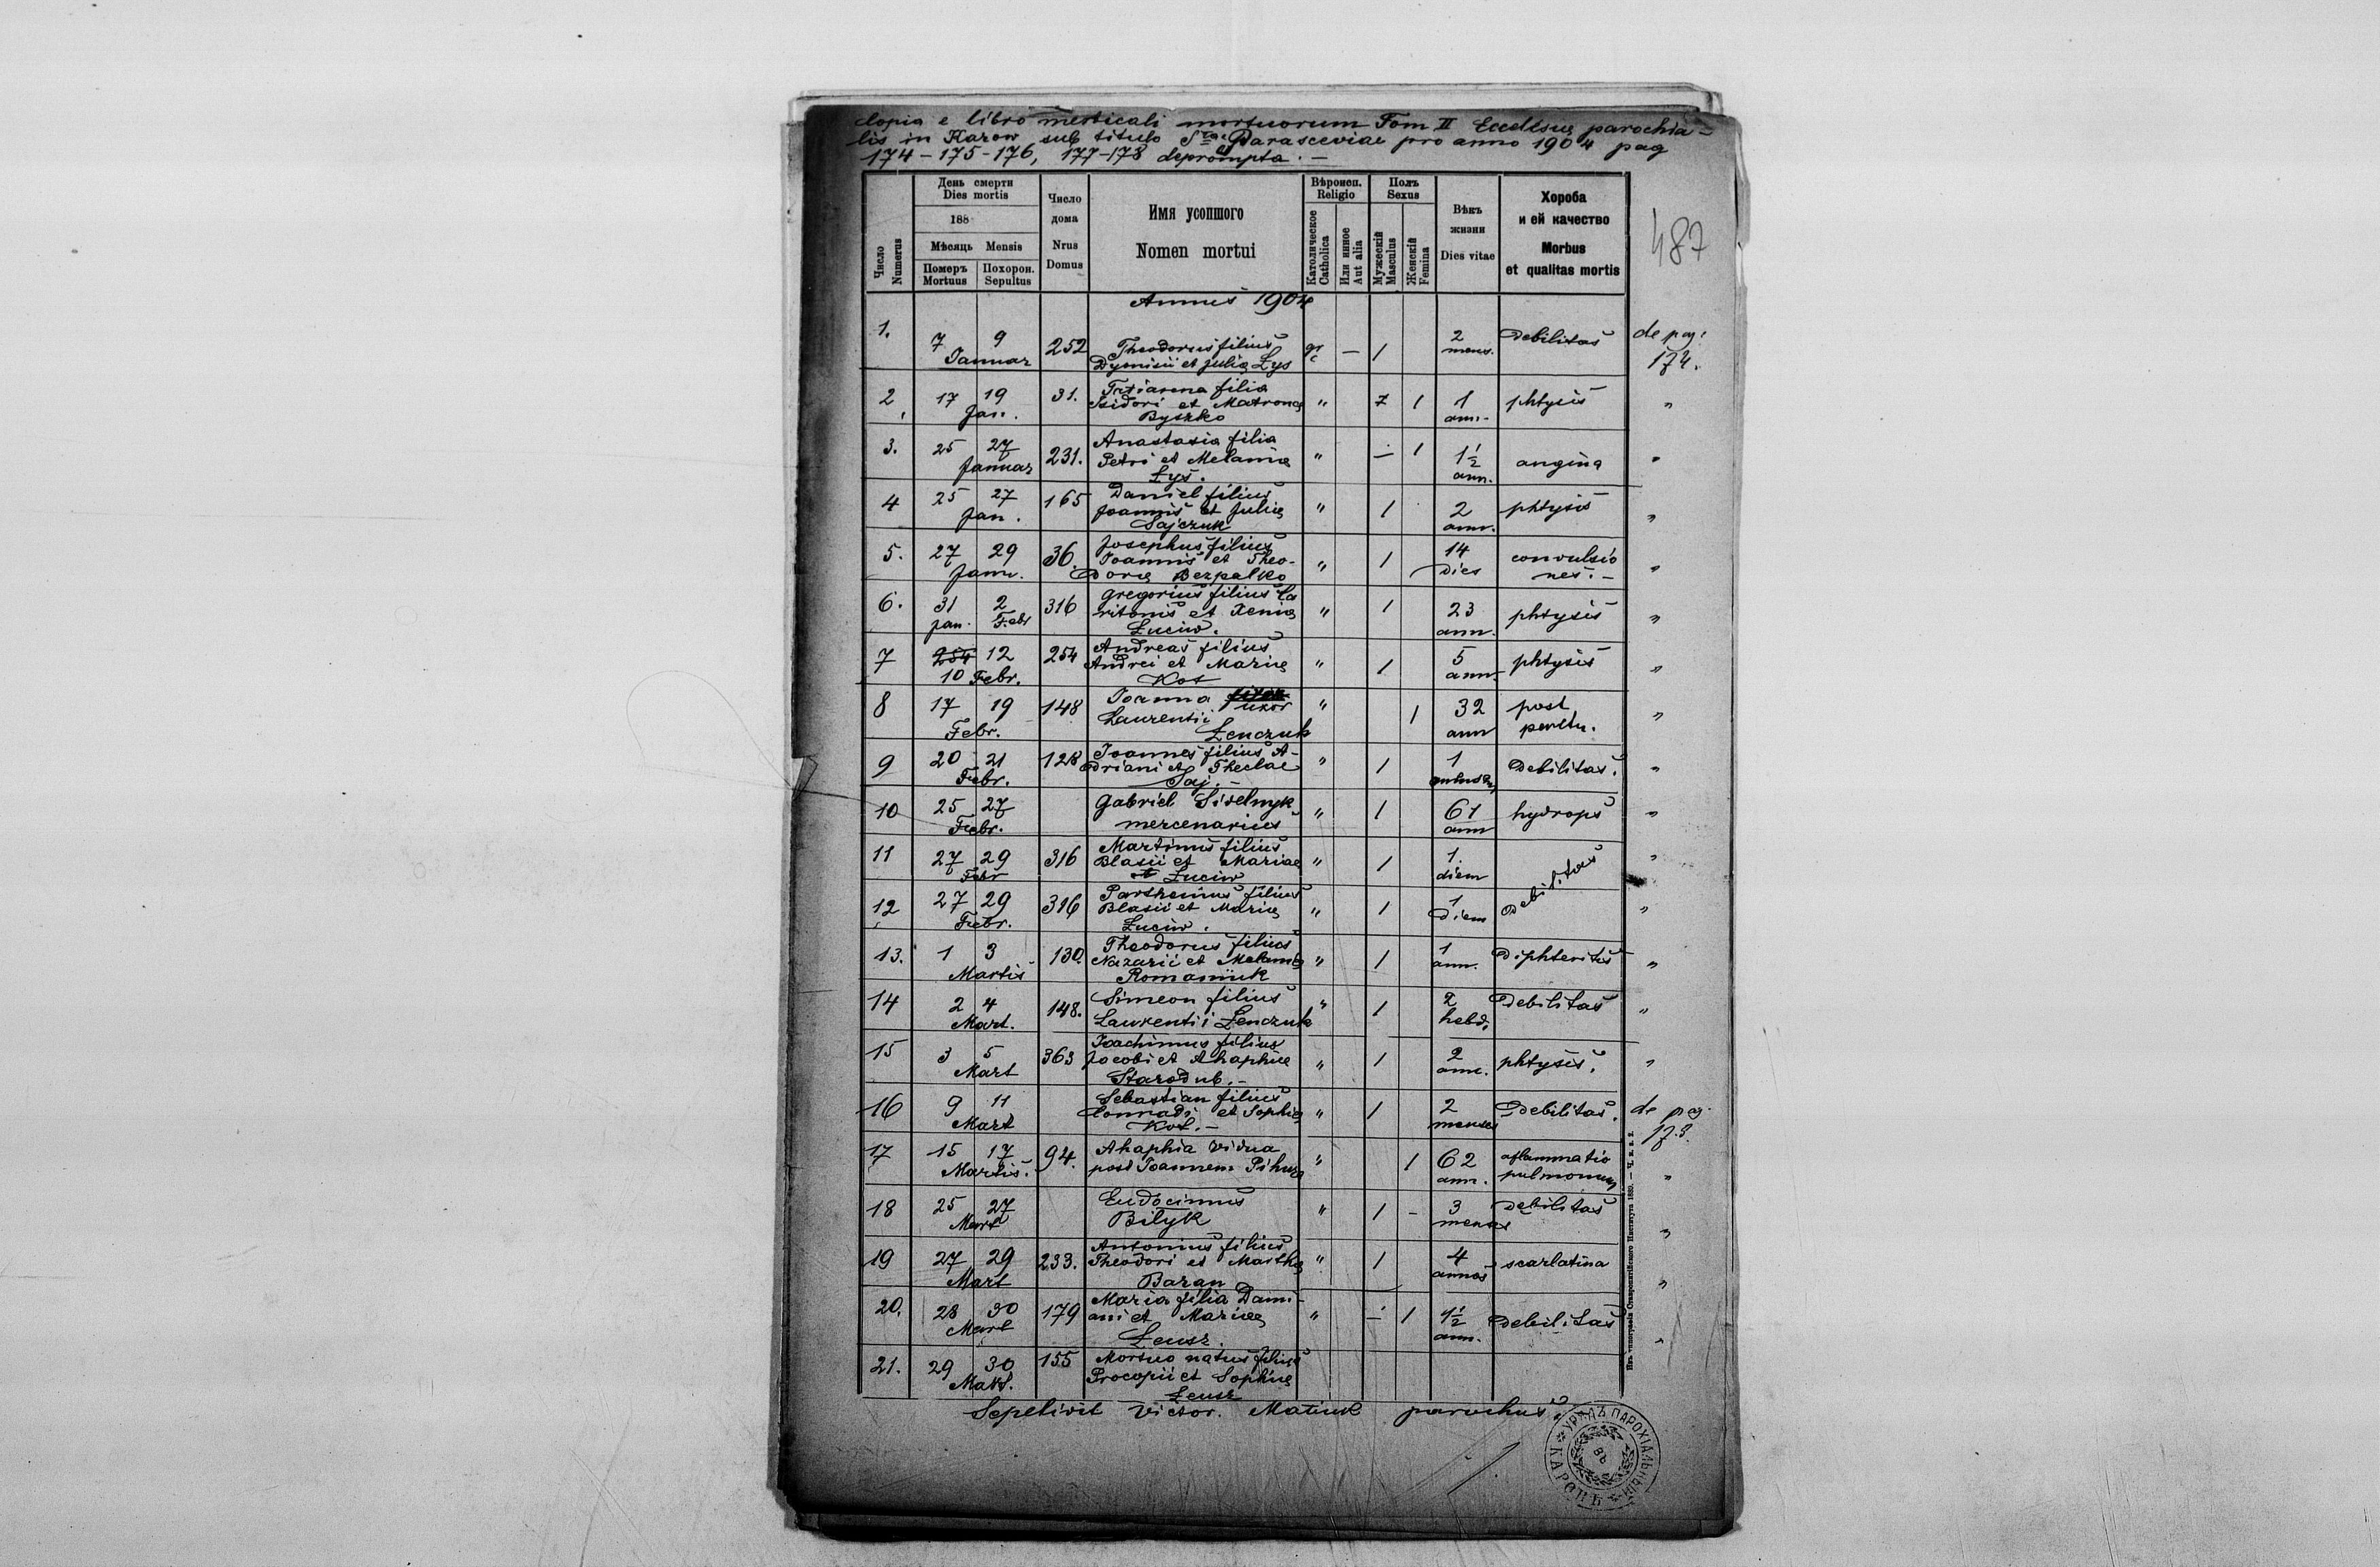 Copia e libro metricali mortuorum Tom II Ecclesiae parochia-
lis in Karow sub titulo Stae Parasceviae pro anno 1904 pag
174-175-176, 177-178 deprompta.-
487
День смерти
Dies mortis
188
Мѣсяць Mensis
Померъ Похорон.
Mortuus Sepultus
Число
Numerus
Число
дома
Nrus
Domus
Имя усопшого
Nomen mortui
Вѣроисп.
Religio
Католическое
Catholica
Или инное
Aut alia
Полъ
Sexus
Мужескій
Masculus
Женскій
Femina
Вѣкъ
жизни
Dies vitae
Хороба
и ей качество
Morbus
et qualitas mortis
Annus 1904
1. 7 9 252 Theodorus filius gr 2 Debilitas de pag.
Januar Dymisii et Julię Łys c — 1 mens. 174.
2. 17 19 31. Tatianna filia
Jan. Isidori et Matronę " 1 1 phtysis "
Byszko ann.
3. 25 27 231. Anastasia filia
Januar Petri et Melanię " — 1 1½ angina "
Łys. ann.
4 25 27 165 Daniel filius
Jan. Joannis et Julię " 1 2 phtysis "
Sajczuk ann.
5. 27 29 36. Josephus filius 14 convulsio
Janu. Joannis et Theo- " 1 dies nes.- "
Dorię Bezpalko
6. 31 2 316 Gregorius filius Ca
Jan. Febr ritonis et Xenię " 1 23 phtysis "
Łuciw. ann.
7 254 12 254 Andreas filius
10 Febr. Andrei et Marię " 1 5 phtysis "
Kot ann.
8 17 19 148 Joanna uxor " 32 post "
Febr. Laurentii 1 ann
Łenczuk
9 20 21 128 Joannes filius A-
Febr. driani et Theclae " 1 1 Debilitas. "
Saj.
10 25 27 Gabriel Sidelnyk " 1 61 hydrops "
Febr. mercenarius ann
11 27 29 316 Martinus filius 1.
Febr Blasii et Mariae " 1 diem Debilitas "
Łuciw
12 27 29 316 Parthenius filius 1
Febr. Blasii et Marię " 1 Diem "
Łuciw.
13. 1 3 130. Theodorus filius 1 Diphteritis
Martis Nazarii et Melanię " 1 ann. "
Romaniuk
14 2 4 148. Simeon filius " 1 2 Debilitas "
Mart. Laurentii Łenczuk hebd.
15 3 5 363 Joachimus filius
Mart Jacobi et Ahaphię " 1 2 phtysis. "
Starodub.- ann.
16 9 11 Sebastian filius 2 Debilitas. de pag.
Mart Conradi et Sophię " 1 menses 175.
Kot.-
17 15 17 94. Ahaphia vidua " 1 62 aflammatio
Martis. post Joannem ann. pulmonum "
18 25 27 Eudocimus " 1 - 3 Debilitas
Mart Bilyk menses "
19 27 29 233. Antonius filius
Mart Theodori et Marthę " 1 4 scarlatina
Baran annos "
20. 28 30 179 Maria filia Dami-
Mart ani et Marię " — 1 1½ Debilitas
Leusz. ann. "
21. 29 30 155 Mortuo natus filius
Mart. Procopii et Sophię
Leusz
Sepelivit Victor. Matiuk parochus
Изъ типографіи Ставропигійского Института 1889. — Ч. в. з. 2.
УРЯДЪ ПАРОХІАЛЬНЫЙ КАРОВЪ